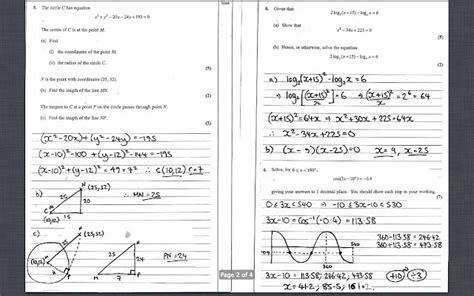 5. The circle C has equation
x² + y² – 20x – 24y + 195 = 0
The centre of C is at the point M.
(a) Find
(i) the coordinates of the point M,
(ii) the radius of the circle C.
(5)
N is the point with coordinates (25, 32).
(b) Find the length of the line MN.
(2)
The tangent to C at a point P on the circle passes through point N.
(c) Find the length of the line NP.
(2)
(x²-20x)+(y²-24y) = -195
(x-10)²-100 + (y-12)²-144 = -195
(x-10)² + (y-12)² = 49 = 7² ∴ C(10,12) r=7
b)
N (25,32)
25
20
(10,12)
15
∴ MN=25
c)
N (25,32)
25
(10,12)
7
P
N
25
24
M
7
P
PN=24
6. Given that
2 log₂(x+15) – log₂ x = 6
(a) Show that
x² – 34x + 225 = 0
(5)
(b) Hence, or otherwise, solve the equation
2 log₂(x+15) – log₂ x = 6
(2)
a) log₂(x+15)² - log₂x = 6
log₂[(x+15)²/x] = 6 ⇒ (x+15)²/x = 2⁶ = 64
(x+15)² = 64x ⇒ x²+30x+225 = 64x
∴ x²-34x+225=0
b) (x-9)(x-25)=0 x=9, x=25
Solve, for 0 ≤ x < 180°,
cos(3x – 10°) = –0.4
giving your answers to 1 decimal place. You should show each step in your working.
(7)
0≤3x<540 ⇒ -10≤3x-10<530
3x-10 = cos⁻¹(-0.4) = 113.58
360-113.58 = 246.42
360+113.58 = 473.58
3x-10 = 113.58, 246.42, 473.58
+10 ÷3
x = 41.2, 85.5, 161.2
Page 2 of 4